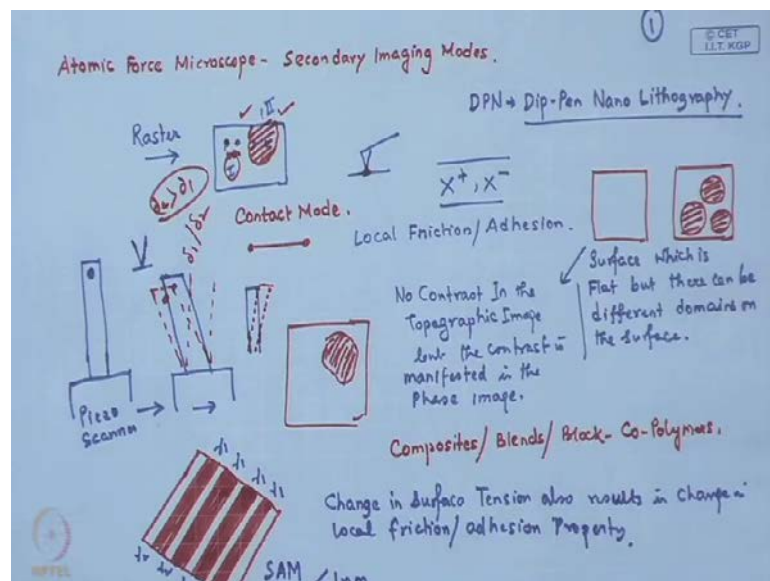 ①
© CET
I.I.T. KGP
Atomic Force Microscope - Secondary Imaging Modes.
DPN → Dip-Pen Nano Lithography.
Raster
I, II
I
δ2 > δ1
X+, X-
Contact Mode.
δ1 / δ2
Local Friction/Adhesion.
Surface which is
Flat but there can be
different domains on
the surface.
No Contract In the
Topographic Image
but the contrast is
manifested in the
Phase image.
Piezo
Scanner
Composites/ Blends/ Block-Co-Polymers.
Change in Surface Tension also results in Change in
local friction/adhesion Property.
SAM
NPTEL